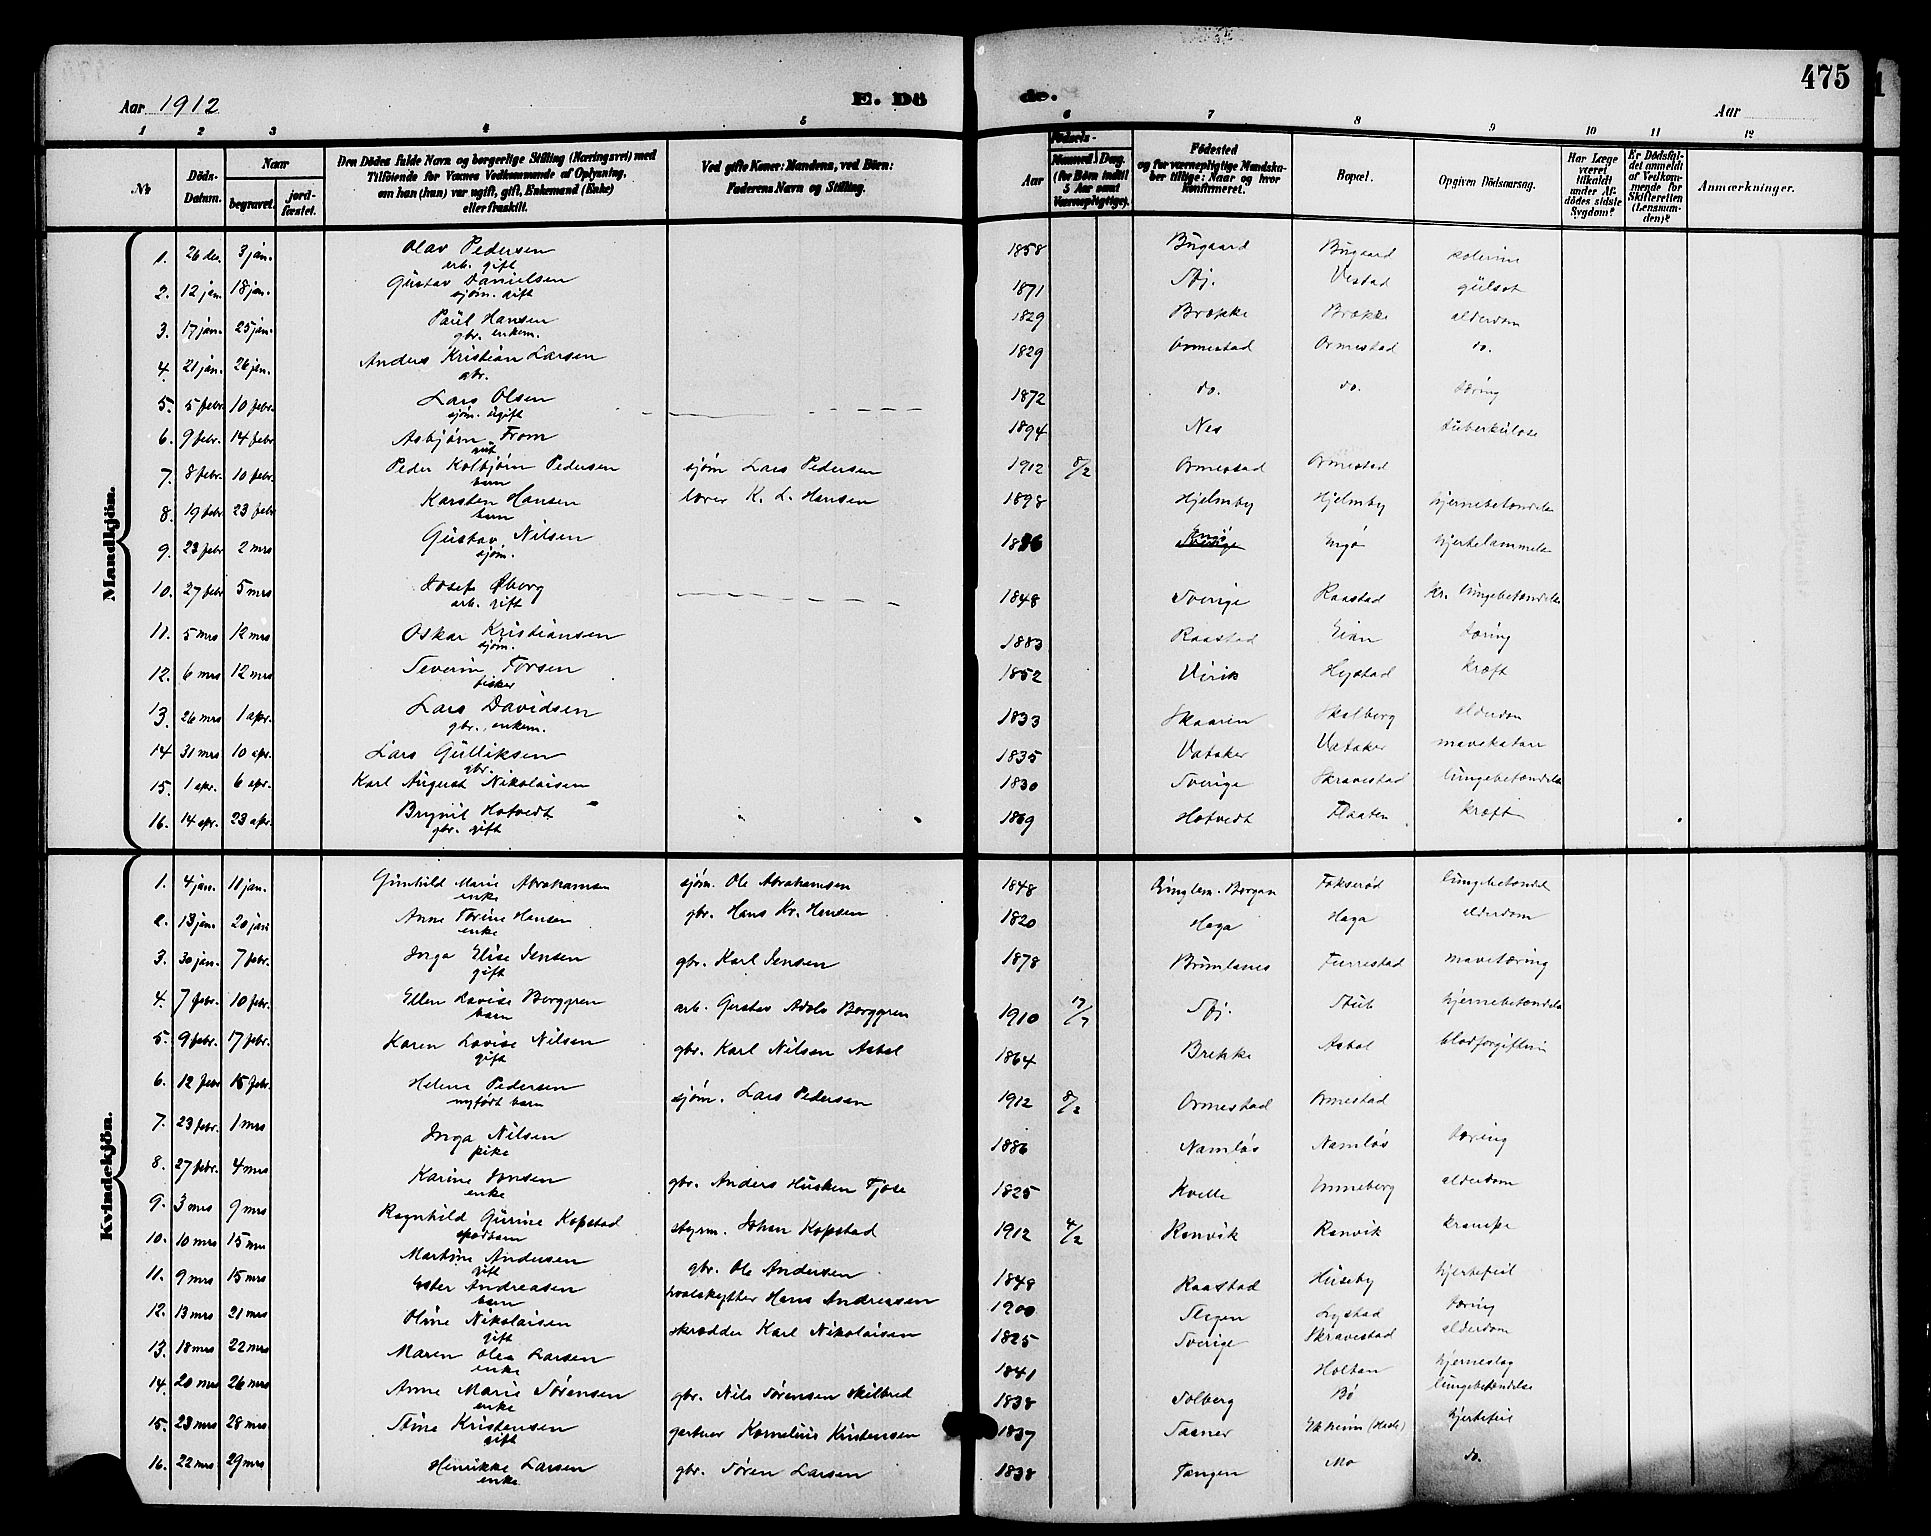 475
Aar 1912 E. Dö de. Aar
1 2 3 4 5 6 7 8 9 10 11 12
No Döds-Datum. Naar begravet. jordfæstet. Den Dödes fulde Navn og borgerlige Stilling (Næringsvei) med Tilföiende for Voxnes Vedkommende af Oplysning, om han (hun) var ugift, gift, Enkemand (Enke) eller fraskilt. Ved gifte Koner: Mandens, ved Börn: Faderens Navn og Stilling. Födsels- Aar Maaned Dag. (for Börn indtil 5 Aar samt Værnepligtige). Födested og for værnepligtige Mandskaber tillige: Naar og hvor Konfirmeret. Bopæl. Opgiven Dödsaarsag. Har Læge været tilkaldt under Afdödes sidste Sygdom? Er Dödsfaldet anmeldt af Vedkommende for Skifteretten (Lensmanden)? Anmærkninger.
Mandkjön.
1. 26 des. 3 jan. Olav Pedersen 1858 Bugaard Bugaard kolerine
arb. gift
2. 12 jan 18 jan. Gustav Danielsen 1871 Sfj. Vestad gulsot
sjøm. gift
3. 17 jan. 25 jan. Paul Hansen 1829 Brekke Brekke alderdom
gbr. enkem.
4. 21 jan. 26 jan. Anders Kristian Larsen 1829 Ormestad Ormestad do.
gbr.
5. 5 febr 10 febr. Lars Olsen 1872 do. do. tæring
sjøm. ugift
6. 9 febr. 14 febr Asbjørn From 1894 Nes tuberkulose
gut
7. 8 febr. 10 febr. Peder Kolbjørn Pedersen sjøm Lars Pedersen 1912 8/2 Ormestad Ormestad
barn
8. 19 febr 23 febr Karsten Hansen lærer K. L. Hansen 1898 Hjelmby Hjelmby hjernebetændelse
barn
9. 23 febr 2 mrs Gustav Nilsen hjertelammelse
sjøm.
10. 27 febr 5 mrs Josef Øberg 1848 Sverige Raastad kr. lungebetændelse
arb. gift
11. 5 mrs 12 mrs Oskar Kristiansen 1883 Raastad Eian tæring
sjøm.
12. 6 mrs 12 mrs Severin Torsen 1852 Virik Hystad kræft
fisker
13. 26 mrs 1 apr. Lars Davidsen 1833 Skaarin Skalberg alderdom
gbr. enkem.
14 31 mrs 10 apr. Lars Gulliksen 1835 Vataker Vataker mavekatarr
gbr.
15. 1 apr. 6 apr. Karl August Nikolaisen 1830 Sverige Skravestad lungebetændelse
16. 14 apr. 23 apr. Brynil Hotvedt 1869 Hotvedt Flaaten kræft
gbr. gift
Kvindekjön.
1. 4 jan. 11 jan. Gunhild Marie Abrahamsen sjøm. Ole Abrahamsen 1848 Fokserød lungebetændel
enke
2. 13 jan. 20 jan Anne Torine Hansen gbr. Hans Kr. Hansen 1820 Haga Haga alderdom
enke
3. 30 jan. 7 febr. Inga Elise Jensen gbr. Karl Jensen 1878 Brunlanes Furrestad mavetæring
gift
4. 7 febr. 10 febr. Ellen Lovise Berggren arb. Gustav Adolv Berggren 1910 17/7 Sfj. Stub hjernebetændelse
barn
5. 9 febr. 17 febr. Karen Lovise Nilsen gbr. Karl Nilsen Asbol 1864 Brekke Asbol blodforgiftning
gift
6. 12 febr 15 febr. Helene Pedersen sjøm. Lars Pedersen 1912 8/2 Ormestad Ormestad
nyfødt barn
7. 23 febr. 1 mrs Inga Nilsen 1886 Namløs Namløs tæring
pike
8. 27 febr. 4 mrs Karine Jonsen gbr. Anders Husken Tjøse 1825 Kvelle Unneberg alderdom
enke
9. 3 mrs 9 mrs Ragnhild Gurine Kopstad styrm. Johan Kopstad 1912 4/2 Ranvik Ranvik krampe
spædbarn
10. 10 mrs 15 mrs Martine Andersen gbr. Ole Andersen 1849 Raastad Huseby hjertefeil
gift
11. 9 mrs 15 mrs Ester Andreasen hvalskytter Hans Andreasen 1900 Stegen Lystad tæring
barn
12. 13 mrs 21 mrs Oline Nikolaisen skrædder Karl Nikolaisen 1825 Sverige Skravestad alderdom
gift
13. 18 mrs 22 mrs Maren Olea Larsen 1841 Holtan hjerneslag
enke
14. 20 mrs 26 mrs Anne Marie Sørensen gbr. Nils Sørensen Skilbred 1838 Solberg Bø lungebetændelse
enke
15. 23 mrs 28 mrs Stine Kristensen gartner Kornelius Kristensen 1837 Ekheim (Hasle) hjertefeil
gift
16. 22 mrs 29 mrs Henrikke Larsen gbr. Søren Larsen 1838 Tangen Mo do.
enke